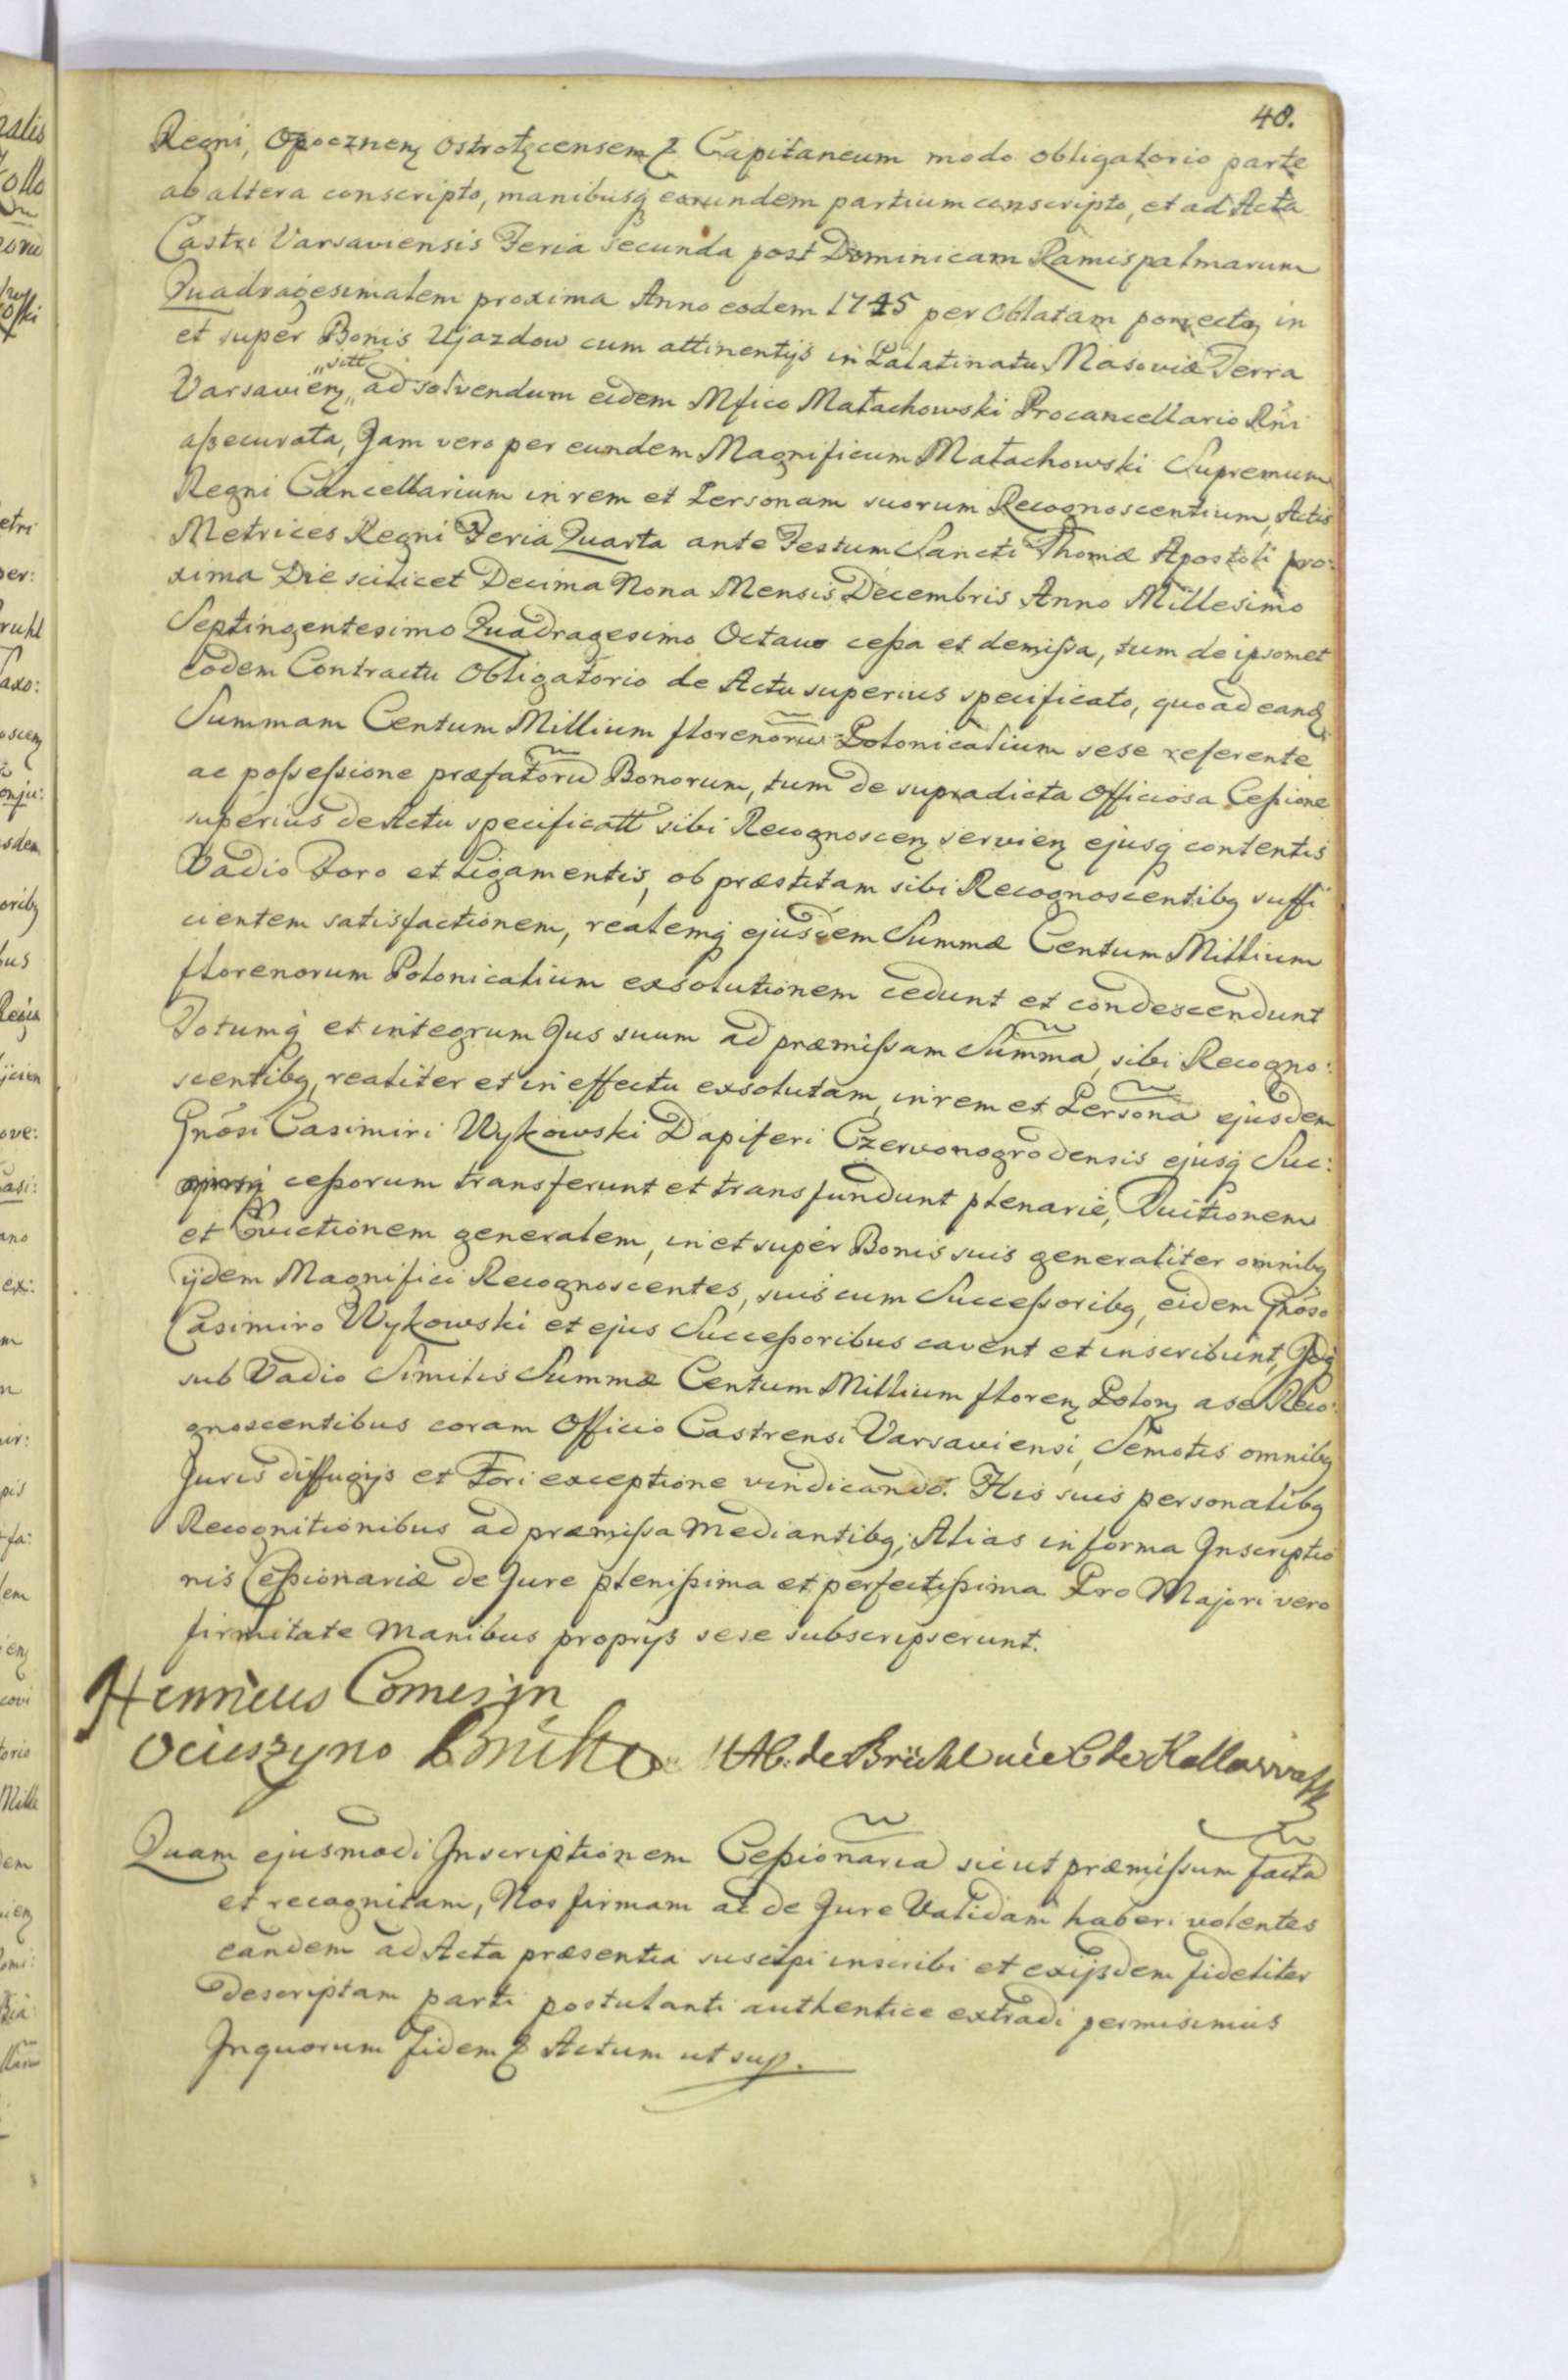 48.
Regni, Opocznen ostrołęcensemq Capitaneum modo obligatorio parte
ab altera conscripto, manibusq earundem partium conscripto, et ad Acta
Castri Varsaviensis Feria secunda post Dominicam Ramispalmarum
Quadragesimalem proxima Anno eodem 1745 per Oblatam porrecto, in
et super Bonis Ujazdow cum attinentijs in Palatinatu Masoviæ Terra
Varsavien „sitt„ ad solvendum eidem Mfico Małachowski Procancellario Rñi
assecurata, Jam vero per eundem Magnificum Małachowski Supremum
Regni Cancellarium in rem et Personam suorum Recognoscentium, Actis
Metrices Regni Feria Quarta ante Festum Sancti Thomæ Apostoli pro:
xima Die scilicet Decima Nona Mensis Decembris Anno Millesimo
Septingentesimo Quadragesimo Octavo cessa et demissa, tum de ipsomet
eodem Contractu Obligatorio de Actu superius specificato, quoad eand
Summam Centum Millium florenorũ Polonicalium sese referente
ac possessione præfatorũ Bonorum, tum de supradicta Officiosa Cessione
superius de Actu specificatt sibi Recognoscen servien ejusq contentis
Vadio Foro et Ligamentis, ob præstitam sibi Recognoscentibq suffi
cientem satisfactionem, realemq ejusdem Summæ Centum Millium
florenorum Polonicalium exsolutionem cedunt et condescendunt
Totumq et integrum Jus suum ad præmissam Summã, sibi Recogno:
scentibq, realiter et in effectu exsolutam, in rem et Personã ejusdem
Gnõsi Casimiri Wykowski Dapiferi Czerwonogrodensis ejusq Suc:
cessorum transferunt et transfundunt plenarie, Quitionem
et Evictionem generalem, in et super Bonis suis generaliter omnibq
ijdem Magnifici Recognoscentes, suis cum Successoribq, eidem Gnõso
Casimiro Wykowski et ejus Successoribus cavent et inscribunt, Idq
sub Vadio Similis Summæ Centum Millium floren Polon a se Reco:
gnoscentibus coram Officio Castrensi Varsaviensi, Semotis omnibq
Juris diffugijs et Fori exceptione vindicando. His suis personalibq
Recognitionibus ad præmissa mediantibq; Alias in forma Inscriptio
nis Cessionariæ de Jure plenissima et perfectissima Pro Majori vero
firmitate manibus proprijs sese subscripserunt.
Henricus Comes in
Ocieszyno Brühl MAC: de Brühl née C de Kollowrath
Quam ejusmodi Inscriptionem Cessionariã sicut præmissum factã
et recognitam, Nos firmam ac de Jure Validam haberi volentes
eandem ad Acta præsentia suscipi inscribi et ex ijsdem fideliter
descriptam parti postulanti authentice extradi permisimus
In quorum fidem q Actum ut sup.